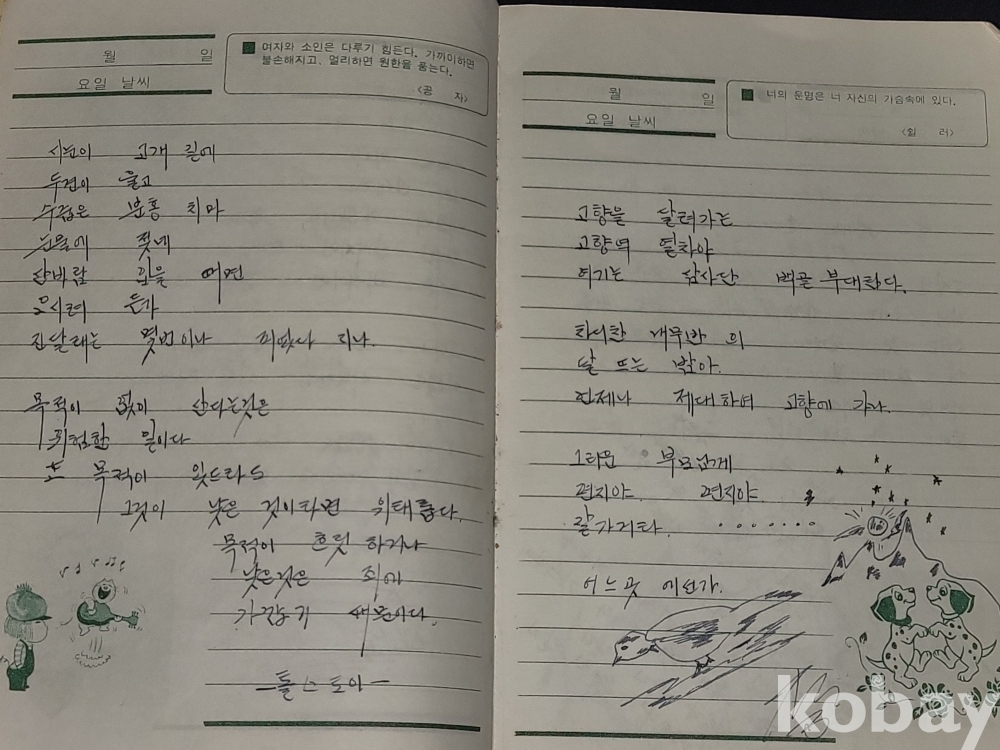 월 일
요일 날씨
여자와 소인은 다루기 힘든다. 가까이하면
불손해지고, 멀리하면 원한을 품는다.
〈공 자〉
고개 길에
두견이 울고
수집은 분홍 치마
눈물에 젖네
산바람 강을
오시려 는가
진달래는 몇번이나 피었나 지나.
목적이 없이 산다는것은
위험한 일이다
또 목적이 있드라도
그것이 낮은 것이라면 위태롭다.
목적이 흐릿 하거나
낮은것은 죄에
가깝기 때문이다.
-톨스토이-
월 일
요일 날씨
너의 운명은 너 자신의 가슴속에 있다.
〈쉴 러〉
고향을 달려가는
고향역 열차야
여기는 삼사단 백골부대란다.
차디찬 내무반 의
달 뜨는 밤아.
언제나 제대하여 고향에 가나.
그리운 부모님께
편지야. 편지야.
잘가거라. . . . . . . .
어느곳 에선가.
kobay